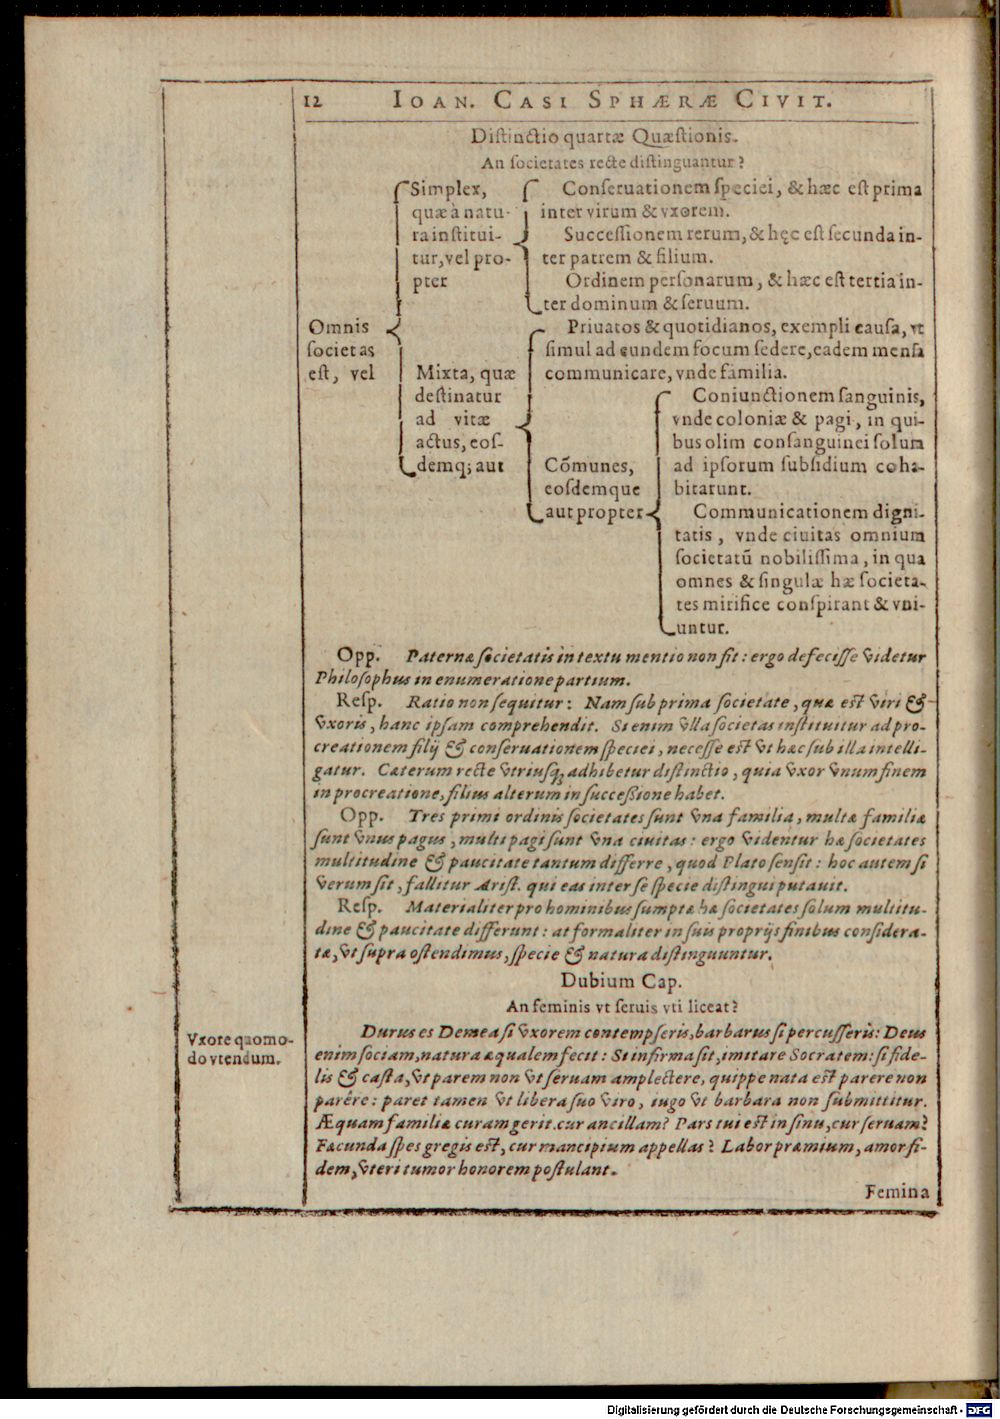 12 IOAN. CASI SPHÆRÆ CIVIT.
Distinctio quartæ Quæstionis.
An societates recte distinguantur?
Omnis
societas
est, vel
Simplex,
quæ à natu-
ra institui-
tur, vel pro-
pter
Conseruationem speciei, & hæc est prima
inter virum & vxorem.
Successionem rerum, & hęc est secunda in-
ter patrem & filium.
Ordinem personarum, & hæc est tertia in-
ter dominum & seruum.
Mixta, quæ
destinatur
ad vitæ
actus, eos-
demq; aut
Priuatos & quotidianos, exempli causa, vt
simul ad eundem focum sedere, eadem mensa
communicare, vnde familia.
Cõmunes,
eosdemque
aut propter
Coniunctionem sanguinis,
vnde coloniæ & pagi, in qui-
bus olim consanguinei solum
ad ipsorum subsidium coha-
bitarunt.
Communicationem digni-
tatis, vnde ciuitas omnium
societatũ nobilissima, in qua
omnes & singulæ hæ societa-
tes mirifice conspirant & vni-
untur.
Opp. Paternæ societatis in textu mentio non fit: ergo defecisse videtur
Philosophus in enumeratione partium.
Resp. Ratio non sequitur: Nam sub prima societate, quæ est viri &
vxoris, hanc ipsam comprehendit. Si enim vlla societas instituitur ad pro-
creationem filij & conseruationem speciei, necesse est vt hæc sub illa intelli-
gatur. Cæterum recte vtriusq; adhibetur distinctio, quia vxor vnum finem
in procreatione, filius alterum in successione habet.
Opp. Tres primi ordinis societates sunt vna familia, multæ familiæ
sunt vnus pagus, multi pagi sunt vna ciuitas: ergo videntur hæ societates
multitudine & paucitate tantum differre, quod Plato sensit: hoc autem si
verum sit, fallitur Arist. qui eas inter se specie distingui putauit.
Resp. Materialiter pro hominibus sumptæ hæ societates solum multitu-
dine & paucitate differunt: at formaliter in suis proprijs finibus considera-
tæ, vt supra ostendimus, specie & natura distinguuntur.
Dubium Cap.
An feminis vt seruis vti liceat?
Vxore quomo-
do vtendum.
Durus es Demea si vxorem contempseris, barbarus si percusseris: Deus
enim sociam, natura æqualem fecit: Si infirma sit, imitare Socratem: si fide-
lis & casta, vt parem non vt seruam amplectere, quippe nata est parere non
parêre: paret tamen vt libera suo viro, iugo vt barbara non submittitur.
Æquam familiæ curam gerit, cur ancillam? Pars tui est in sinu, cur seruam?
Fæcunda spes gregis est, cur mancipium appellas? Labor præmium, amor fi-
dem, vteri tumor honorem postulant.
Femina
Digitalisierung gefördert durch die Deutsche Forschungsgemeinschaft - DFG